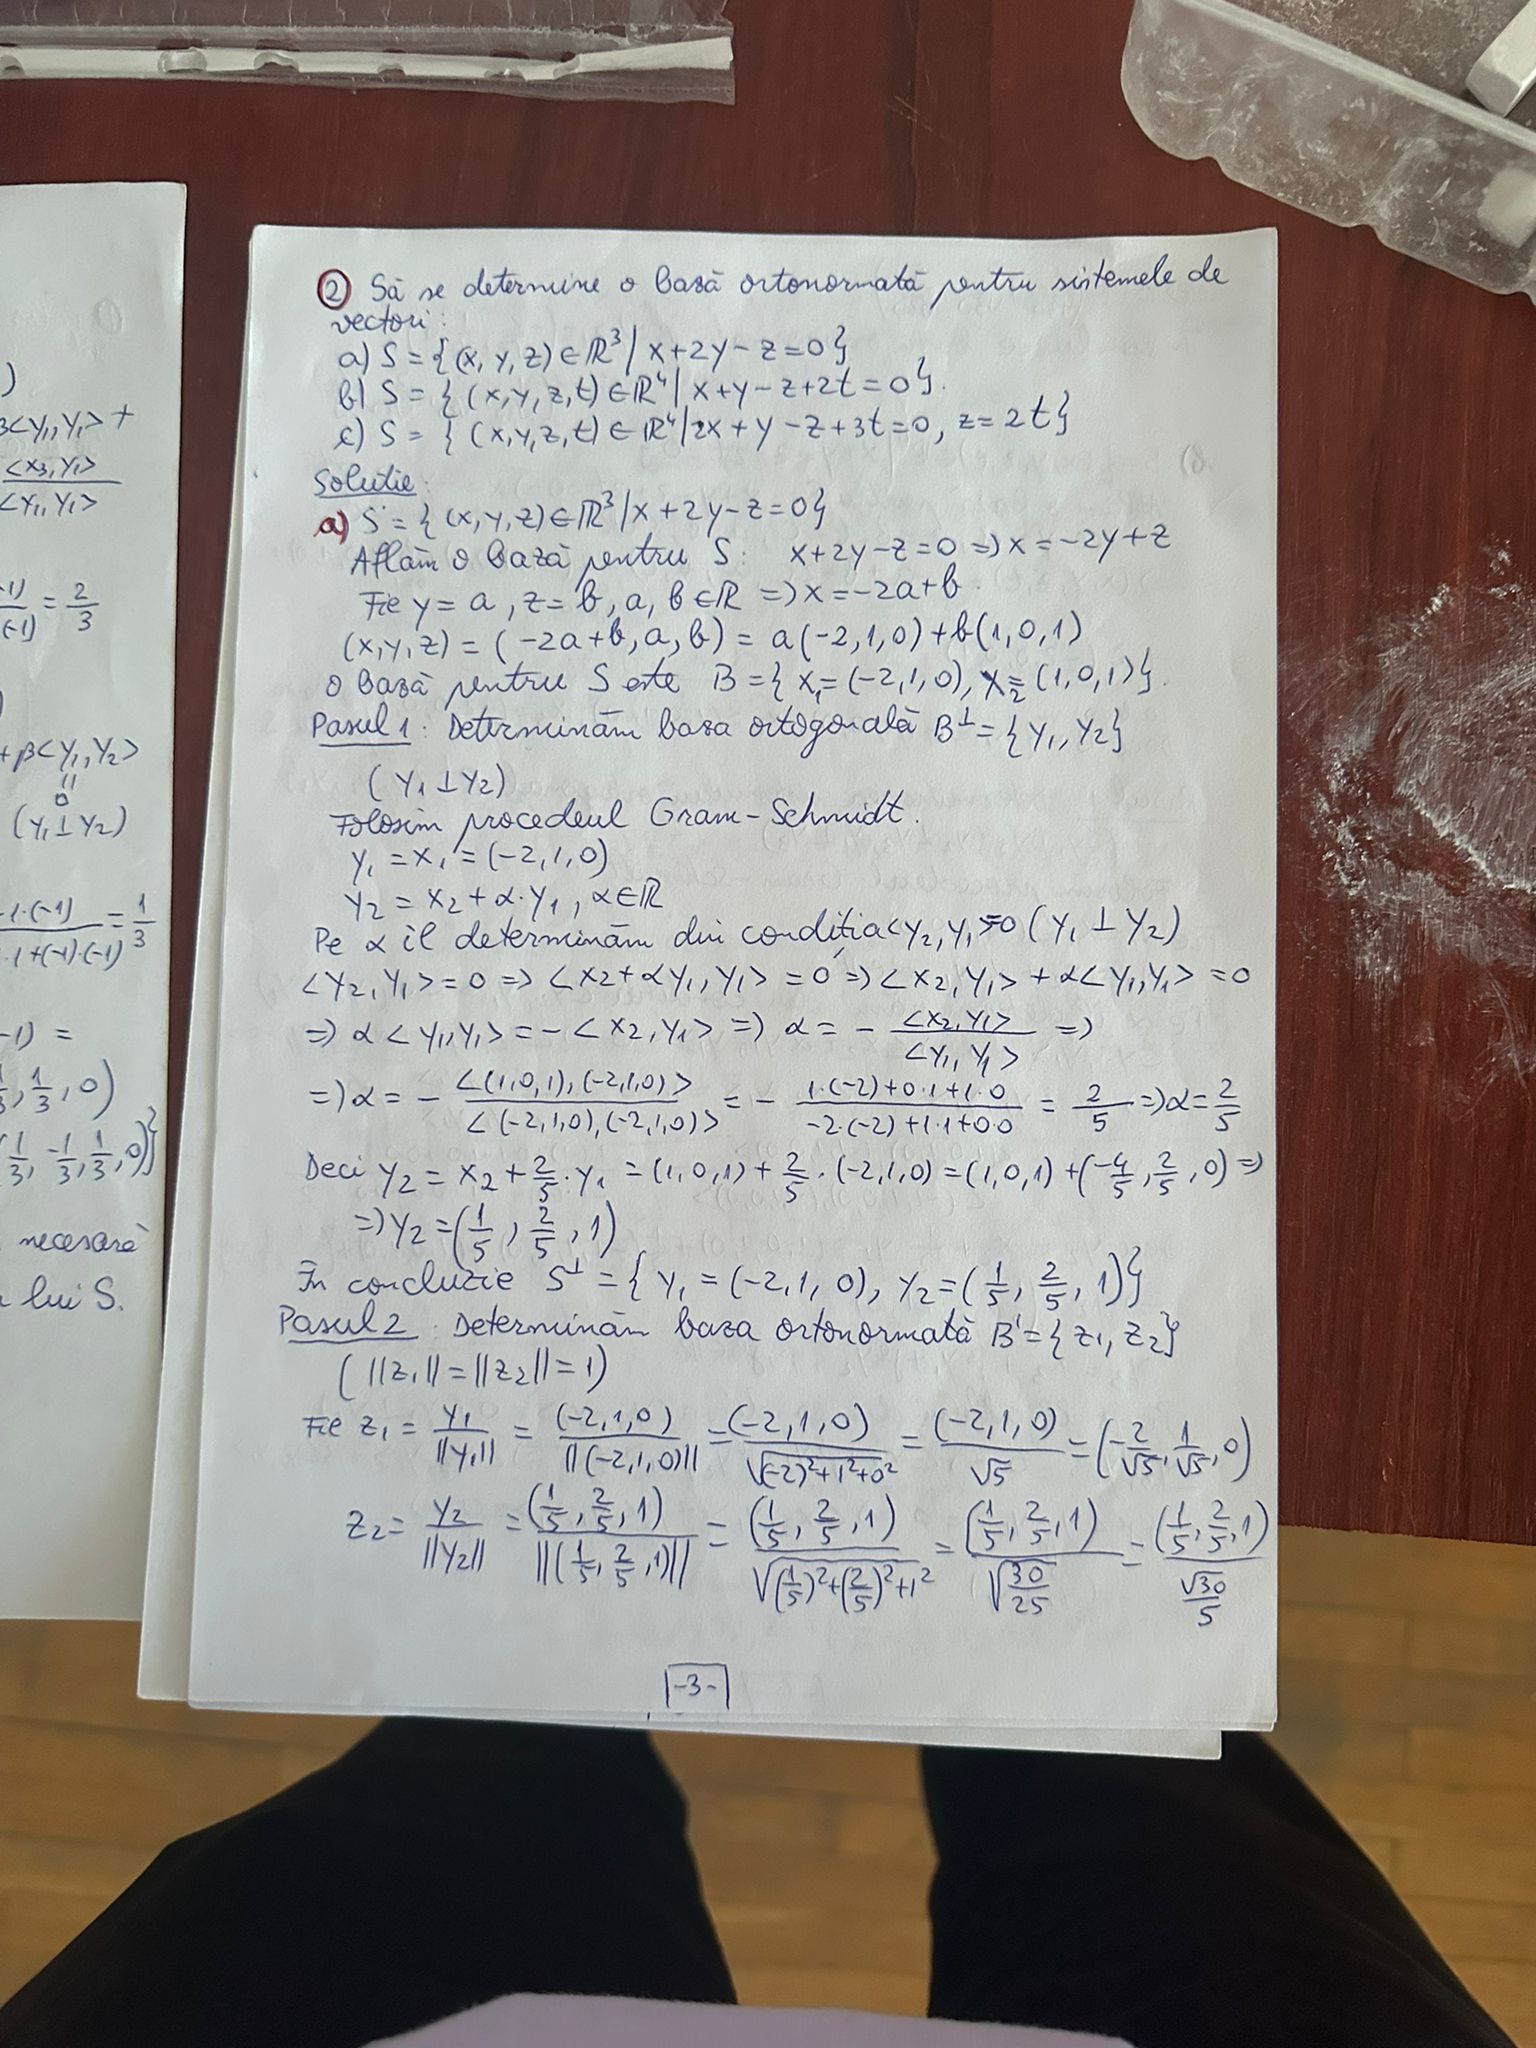 )
3<y₁,y₁> +
<x₃,y₁>
<y₁,y₁>
-1)
(-1) = 2/3
)
+β<y₁,y₂>
||
0
(y₁⊥y₂)
-1·(-1)
·1+(-1)·(-1) = 1/3
-1) =
1/3, 1/3, 0)
(1/3, -1/3, 1/3, 0)}
necesară
lui S.
② Să se determine o bază ortonormată pentru sistemele de
vectori:
a) S = {(x, y, z) ∈ ℝ³ | x+2y-z=0}
b) S = {(x,y,z,t) ∈ ℝ⁴ | x+y-z+2t=0}.
c) S = {(x,y,z,t) ∈ ℝ⁴ | 2x+y-z+3t=0, z=2t}
Soluție:
a) S = {(x,y,z) ∈ ℝ³ | x+2y-z=0}
Aflăm o bază pentru S: x+2y-z=0 => x=-2y+z
Fie y=a, z=b, a, b ∈ ℝ => x=-2a+b.
(x,y,z) = (-2a+b, a, b) = a(-2,1,0)+b(1,0,1)
O bază pentru S este B={x₁=(-2,1,0), x₂=(1,0,1)}.
Pasul 1: Determinăm baza ortogonală B⊥={y₁, y₂}
(y₁⊥y₂)
Folosim procedeul Gram-Schmidt.
y₁=x₁=(-2,1,0)
y₂=x₂+α·y₁, α∈ℝ
Pe α îl determinăm din condiția <y₂,y₁>=0 (y₁⊥y₂)
<y₂,y₁>=0 => <x₂+αy₁,y₁>=0 => <x₂,y₁>+α<y₁,y₁>=0
=> α<y₁,y₁>=-<x₂,y₁> => α = - <x₂,y₁>/<y₁,y₁> =>
=> α = - <(1,0,1),(-2,1,0)>/<(-2,1,0),(-2,1,0)> = - (1·(-2)+0·1+1·0)/(-2·(-2)+1·1+0·0) = 2/5 => α=2/5
Deci y₂=x₂+2/5·y₁=(1,0,1)+2/5·(-2,1,0)=(1,0,1)+(-4/5, 2/5, 0) =>
=> y₂=(1/5, 2/5, 1)
În concluzie S⊥={y₁=(-2,1,0), y₂=(1/5, 2/5, 1)}
Pasul 2: Determinăm baza ortonormată B'={z₁, z₂}
(||z₁||=||z₂||=1)
Fie z₁ = y₁/||y₁|| = (-2,1,0)/||(-2,1,0)|| = (-2,1,0)/√((-2)²+1²+0²) = (-2,1,0)/√5 = (-2/√5, 1/√5, 0)
z₂ = y₂/||y₂|| = (1/5, 2/5, 1)/||(1/5, 2/5, 1)|| = (1/5, 2/5, 1)/√((1/5)²+(2/5)²+1²) = (1/5, 2/5, 1)/√(30/25) = (1/5, 2/5, 1)/(√30/5)
-3-